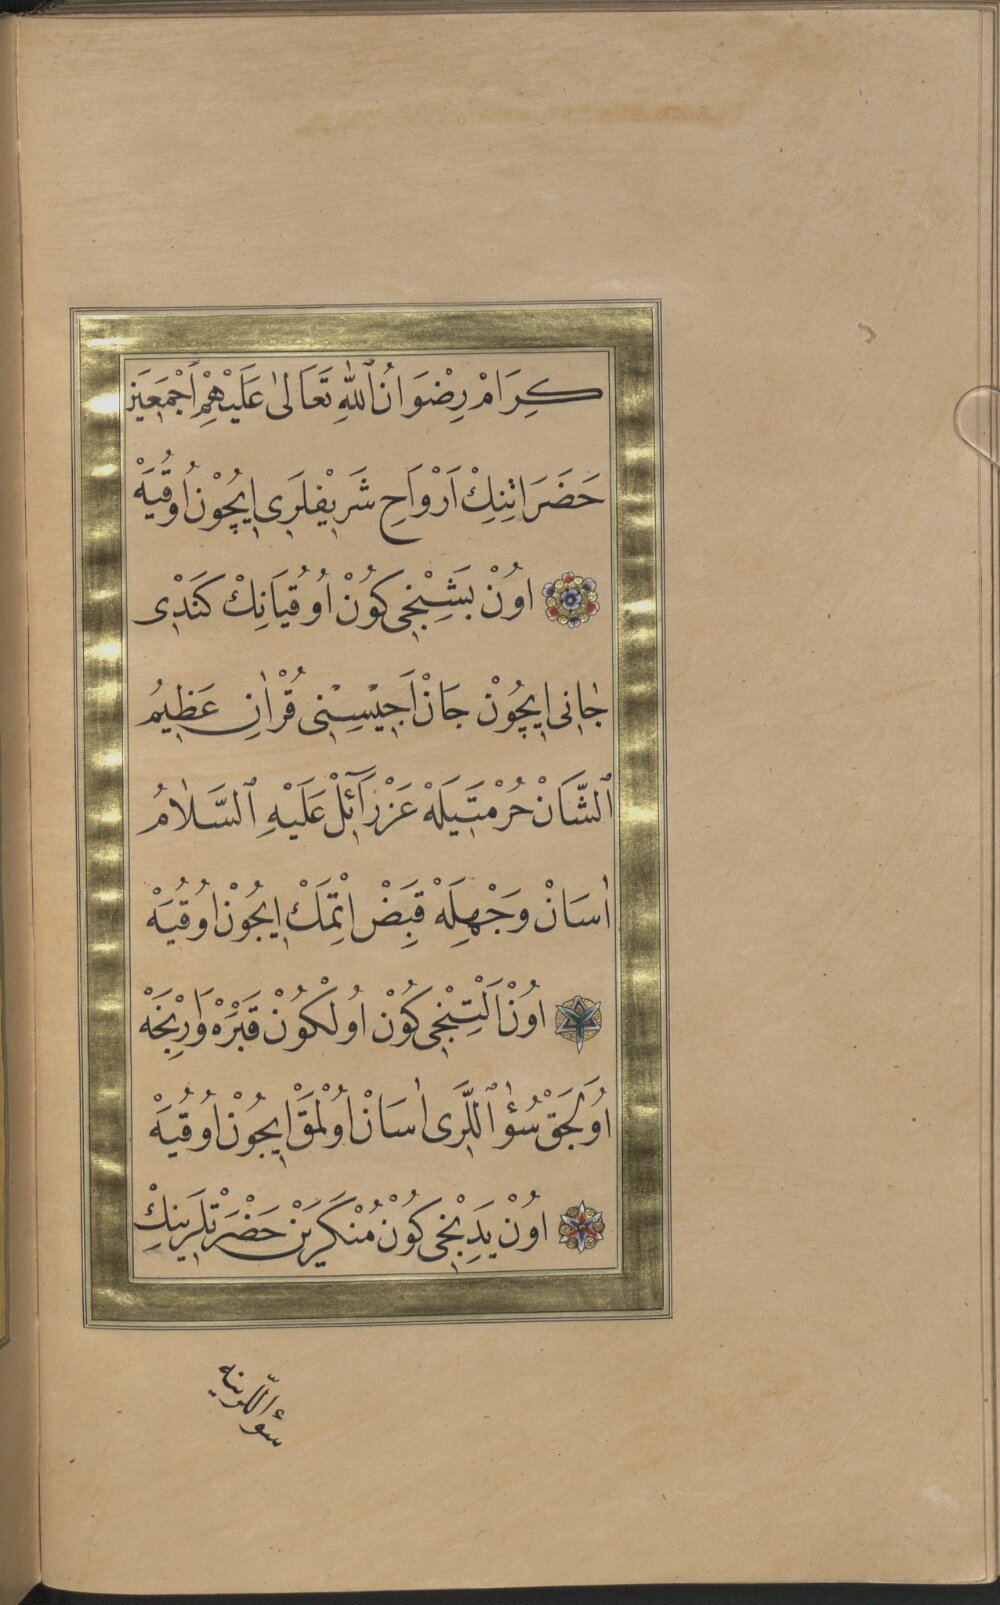 كِرَامْ رِضْوَانُ ٱللّٰهِ تَعَالٰى عَلَيْهِمْ اَجْمَعِينْ
حَضَرَاتِنِكْ اَرْوَاحِ شَرِيْفلَرِى اِيچُوْنْ اُوقُيَهْ
اوُنْ بَشِنْجِى كُوْنْ اُوقُيَانِكْ كَنْدِى
جٰانِى اِيچُوْنْ جَانْ اَجِيْسِنِى قُرْاٰنِ عَظِيمُ
ٱلشَّانْ حُرْمَتِيلَهْ عَزْرَآئِلْ عَلَيْهِ ٱلسَّلَامُ
اٰسَانْ وَجْهِلَهْ قَبِضْ اِتِمَكْ اِيجُوْنْ اوُقُيَهْ
اوُنْ اَلْتِنْجِى كُوْنْ اُولْكُوْنْ قَبْرَهْ وَارِيْجَهْ
اُولَجَقْ سُؤٰٱللَّرِى اٰسَانْ اُولْمَقْ اِيجُوْنْ اُوقُيَهْ
اوُنْ يَدِنْجِى كُوْنْ مُنْكَرَيْنْ حَضْرَتْلَرِينِكْ
سؤاللّرينه